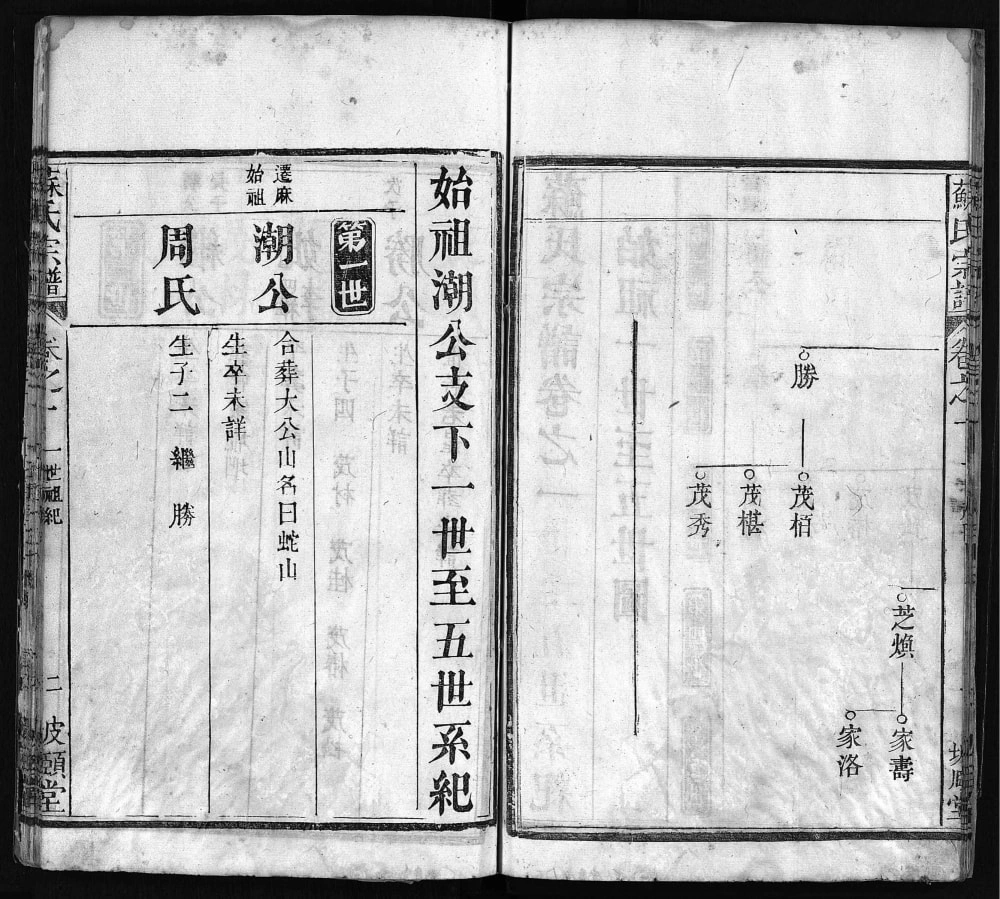 蘇氏宗譜
卷之一
勝
茂栢
茂椹
茂秀
芝煥
家壽
家洛
始祖潮公支下一世至五世系紀
第一世
遷麻
始祖
潮公
合葬大公山名曰蛇山
生卒未詳
周氏
生子二 繼 勝
蘇氏宗譜
卷之一
一世祖紀
二